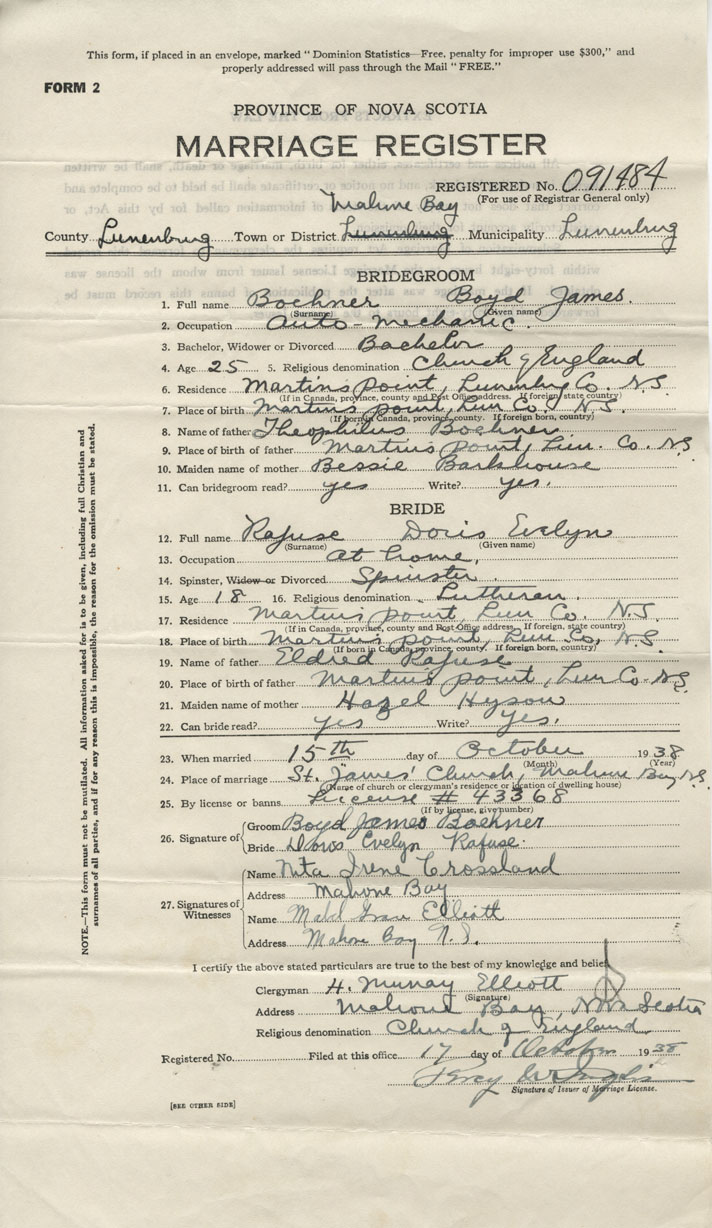 This form, if placed in an envelope, marked "Dominion Statistics—Free, penalty for improper use $300," and
properly addressed will pass through the Mail "FREE."
FORM 2
PROVINCE OF NOVA SCOTIA
MARRIAGE REGISTER
REGISTERED No. 091484
(For use of Registrar General only)
Mahone Bay
County Lunenburg Town or District Lunenburg Municipality Lunenburg
BRIDEGROOM
1. Full name Boehner Boyd James.
(Surname) (Given name)
2. Occupation Auto-Mechanic.
3. Bachelor, Widower or Divorced Bachelor
4. Age 25 5. Religious denomination Church of England
6. Residence Martins Point, Lunenburg Co. N.S.
(If in Canada, province, county and Post Office address. If foreign state country)
7. Place of birth Martins point, Lun Co. N.S.
(If born in Canada, province, county. If foreign born, country)
8. Name of father Theophilus Boehner
9. Place of father Martins point, Lun. Co. N.S.
10. Maiden name of mother Bessie Barkhouse
11. Can bridegroom read? yes Write? yes.
BRIDE
12. Full name Rafuse Doris Evelyn
(Surname) (Given name)
13. Occupation at home,
14. Spinster, Widow or Divorced Spinster.
15. Age 18 16. Religious denomination Lutheran.
17. Residence Martins point, Lun Co. N.S.
(If in Canada, province, county and Post Office address. If foreign, state country)
18. Place of birth Martins point, Lun Co, N.S.
(If born in Canada, province, county. If foreign born, country)
19. Name of father Eldred Rafuse
20. Place of birth of father Martin's point, Lun Co. N.S.
21. Maiden name of mother Hazel Hyson
22. Can bride read? yes Write? yes.
23. When married 15th day of October 1938
(Month) (Year)
24. Place of marriage St. James' Church, Mahone Bay N.S.
(Name of church or clergyman's residence or location of dwelling house)
25. By license or banns License # 43368
(If by license, give number)
26. Signature of
Groom Boyd James Boehner
Bride Doris Evelyn Rafuse.
27. Signatures of Witnesses
Name Nita Irene Crossland
Address Mahone Bay
Name Elliott
Address Mahone Bay N.S.
I certify the above stated particulars are true to the best of my knowledge and belief
Clergyman H. Murray Elliott
(Signature)
Address Mahone Bay, Nova Scotia
Religious denomination Church of England
Registered No. Filed at this office 17 day of October 1938
Percy
Signature of Issuer of Marriage License.
[SEE OTHER SIDE]
NOTE.—This form must not be mutilated. All information asked for is to be given, including full Christian and
surnames of all parties, and if for any reason this is impossible, the reason for the omission must be stated.